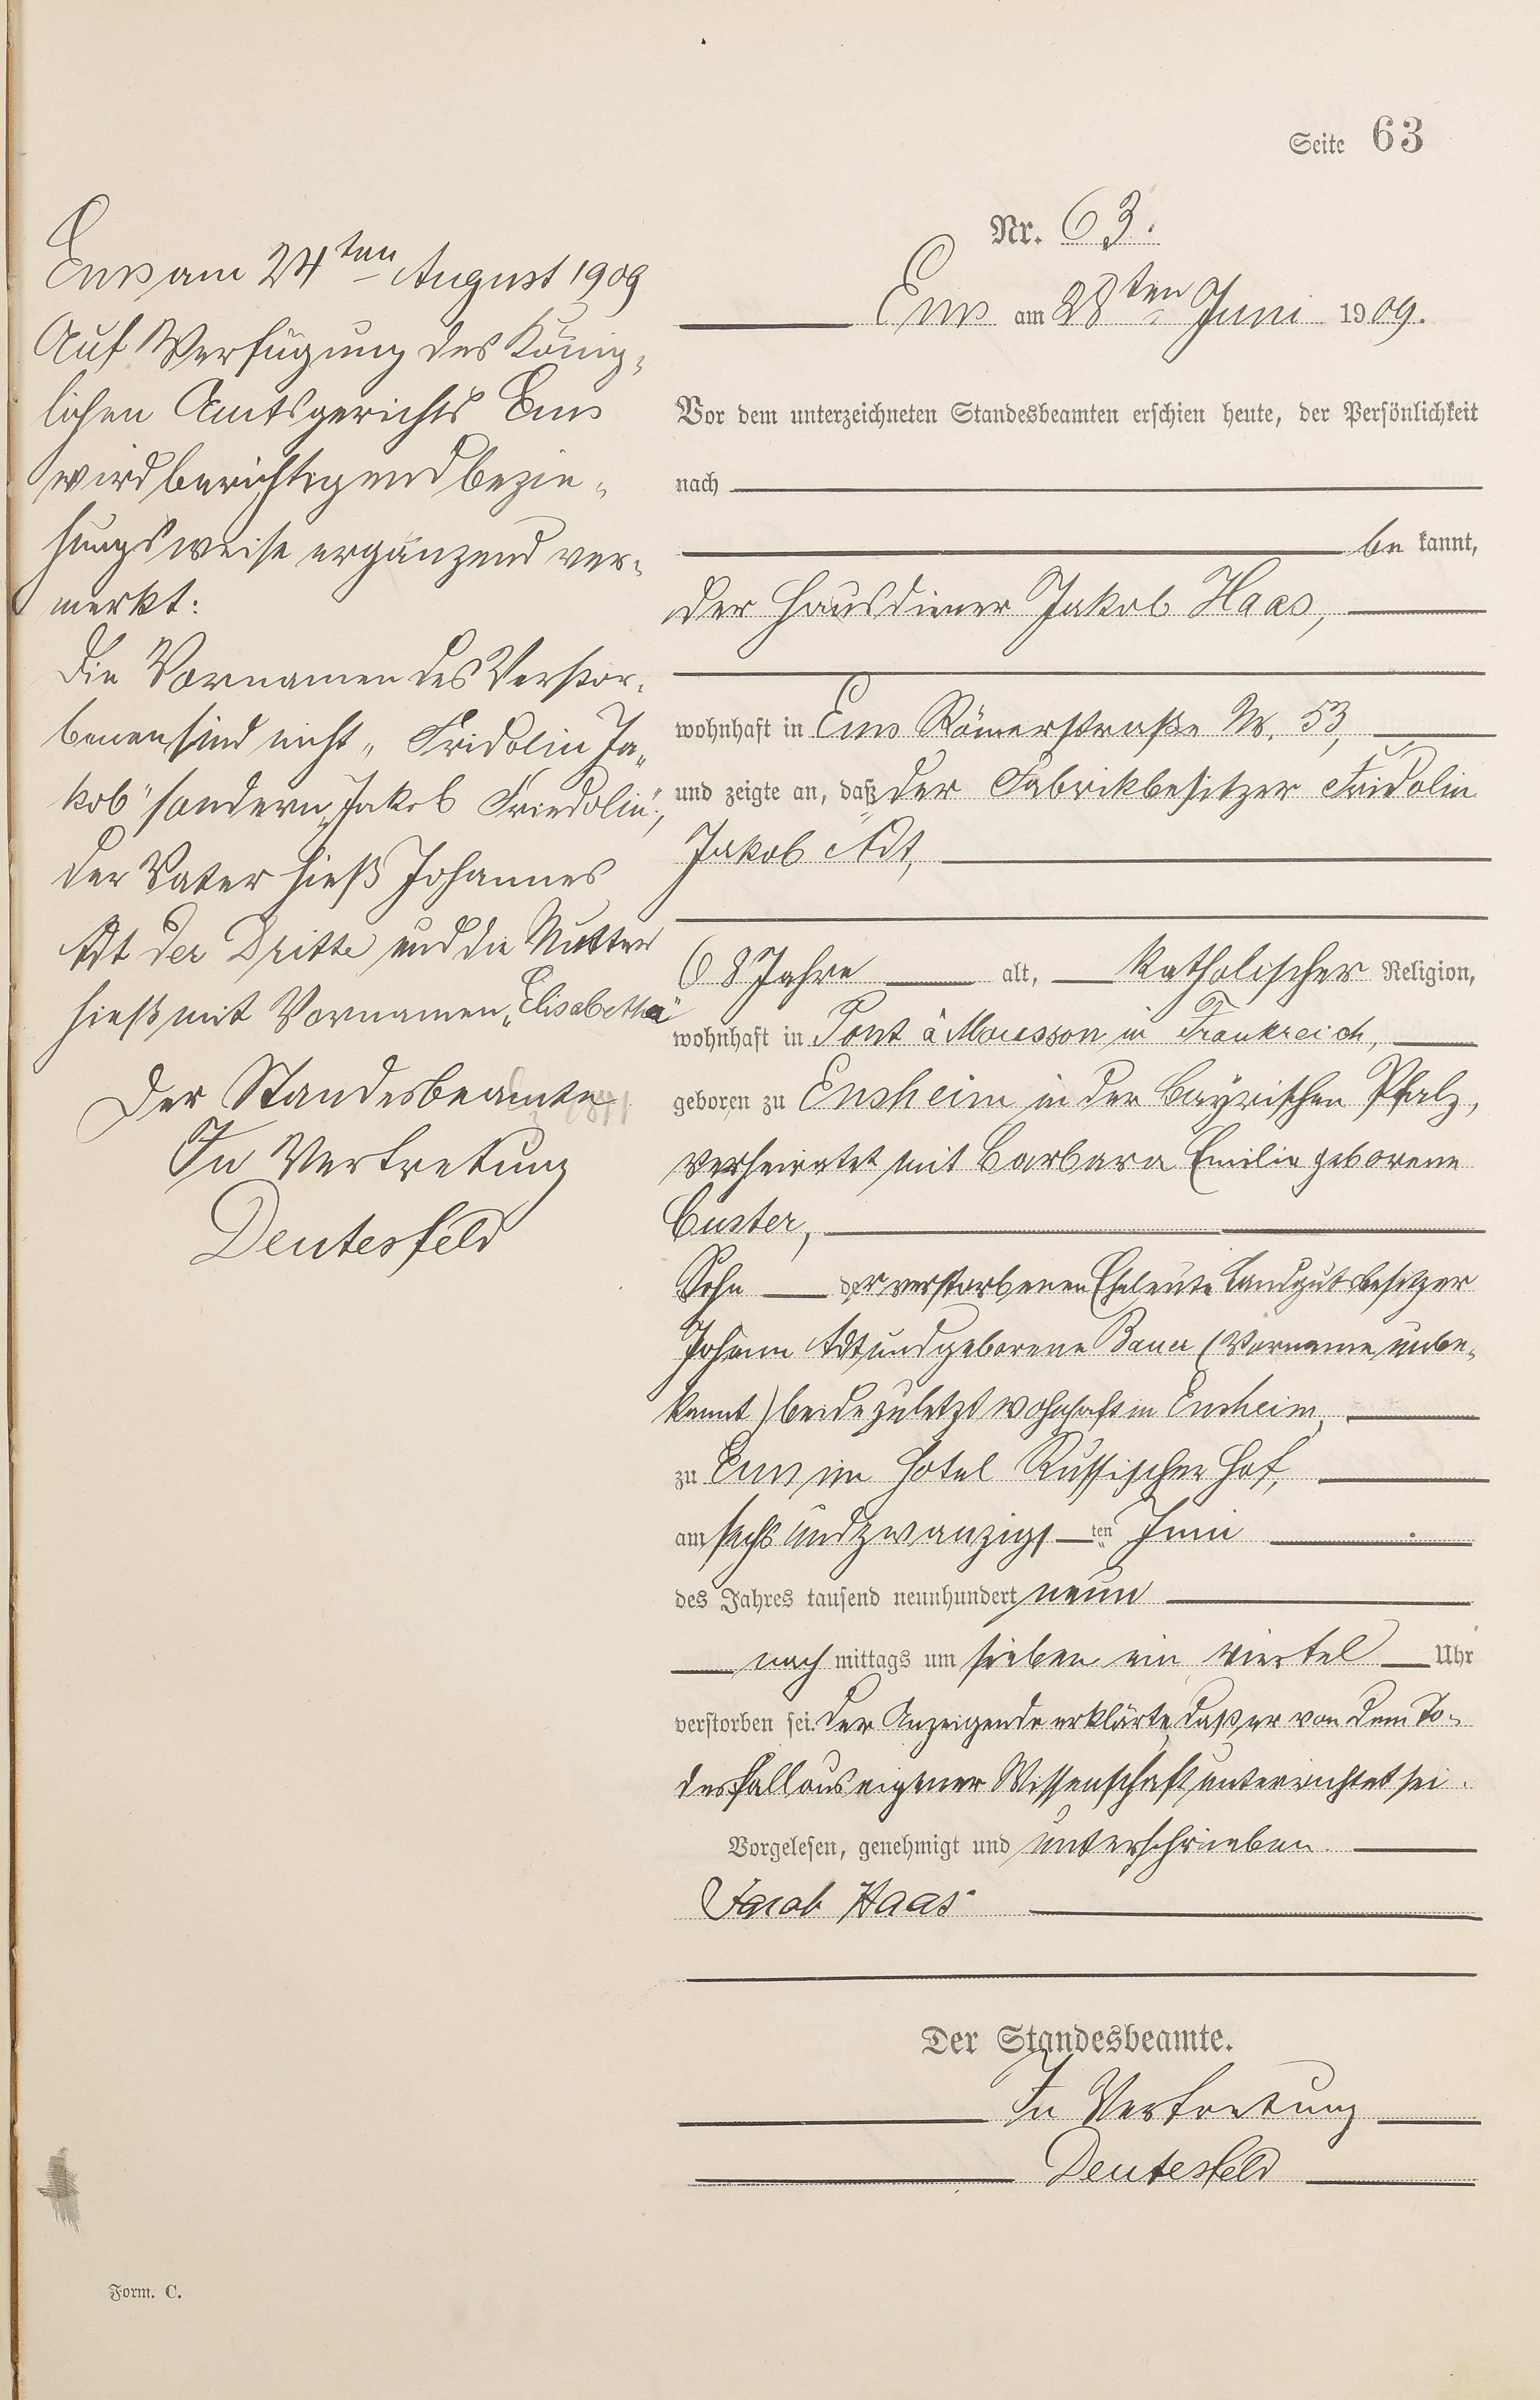 Seite 63
Nr. 63.
Ems am 28ten Juni 1909.
Vor dem unterzeichneten Standesbeamten erschien heute, der Persönlichkeit
nach
be kannt,
der Hausdiener Jakob Haas,
wohnhaft in Ems Römerstraße Nr. 53,
und zeigte an, daß der Fabrikbesitzer Fridolin
Jakob Adt,
68 Jahre alt, katholischer Religion,
wohnhaft in Pont à Mousson in Frankreich,
geboren zu Ensheim in der bayrischen Pfalz,
verheiratet mit Barbara Emilie geborene
Custer,
Sohn der verstorbenen Eheleute Landgutsbesitzer
Johann Adt und geborene Bauer (Vorname unbe-
kannt) beide zuletzt wohnhaft in Ensheim,
zu Ems im Hotel Russischer Hof,
am sechs und zwanzigsten Juni
des Jahres tausend neunhundert neun
nach mittags um sieben ein viertel Uhr
verstorben sei. Der Anzeigende erklärte, daß er von dem To-
desfall aus eigener Wissenschaft unterrichtet sei.
Vorgelesen, genehmigt und unterschrieben.
Jacob Haas
Der Standesbeamte.
In Vertretung
Deutesfeld
Ems am 24ten August 1909
Auf Verfügung des König-
lichen Amtsgerichts Ems
wird berichtigend bezie-
hungsweise ergänzend ver-
merkt:
Die Vornamen des Verstor-
benen sind nicht „Fridolin Ja-
kob" sondern „Jakob Friedolin",
der Vater hieß Johannes
Adt der Dritte und die Mutter
hieß mit Vornamen „Elisabetha"
Der Standesbeamte
In Vertretung
Deutesfeld
Form. C.